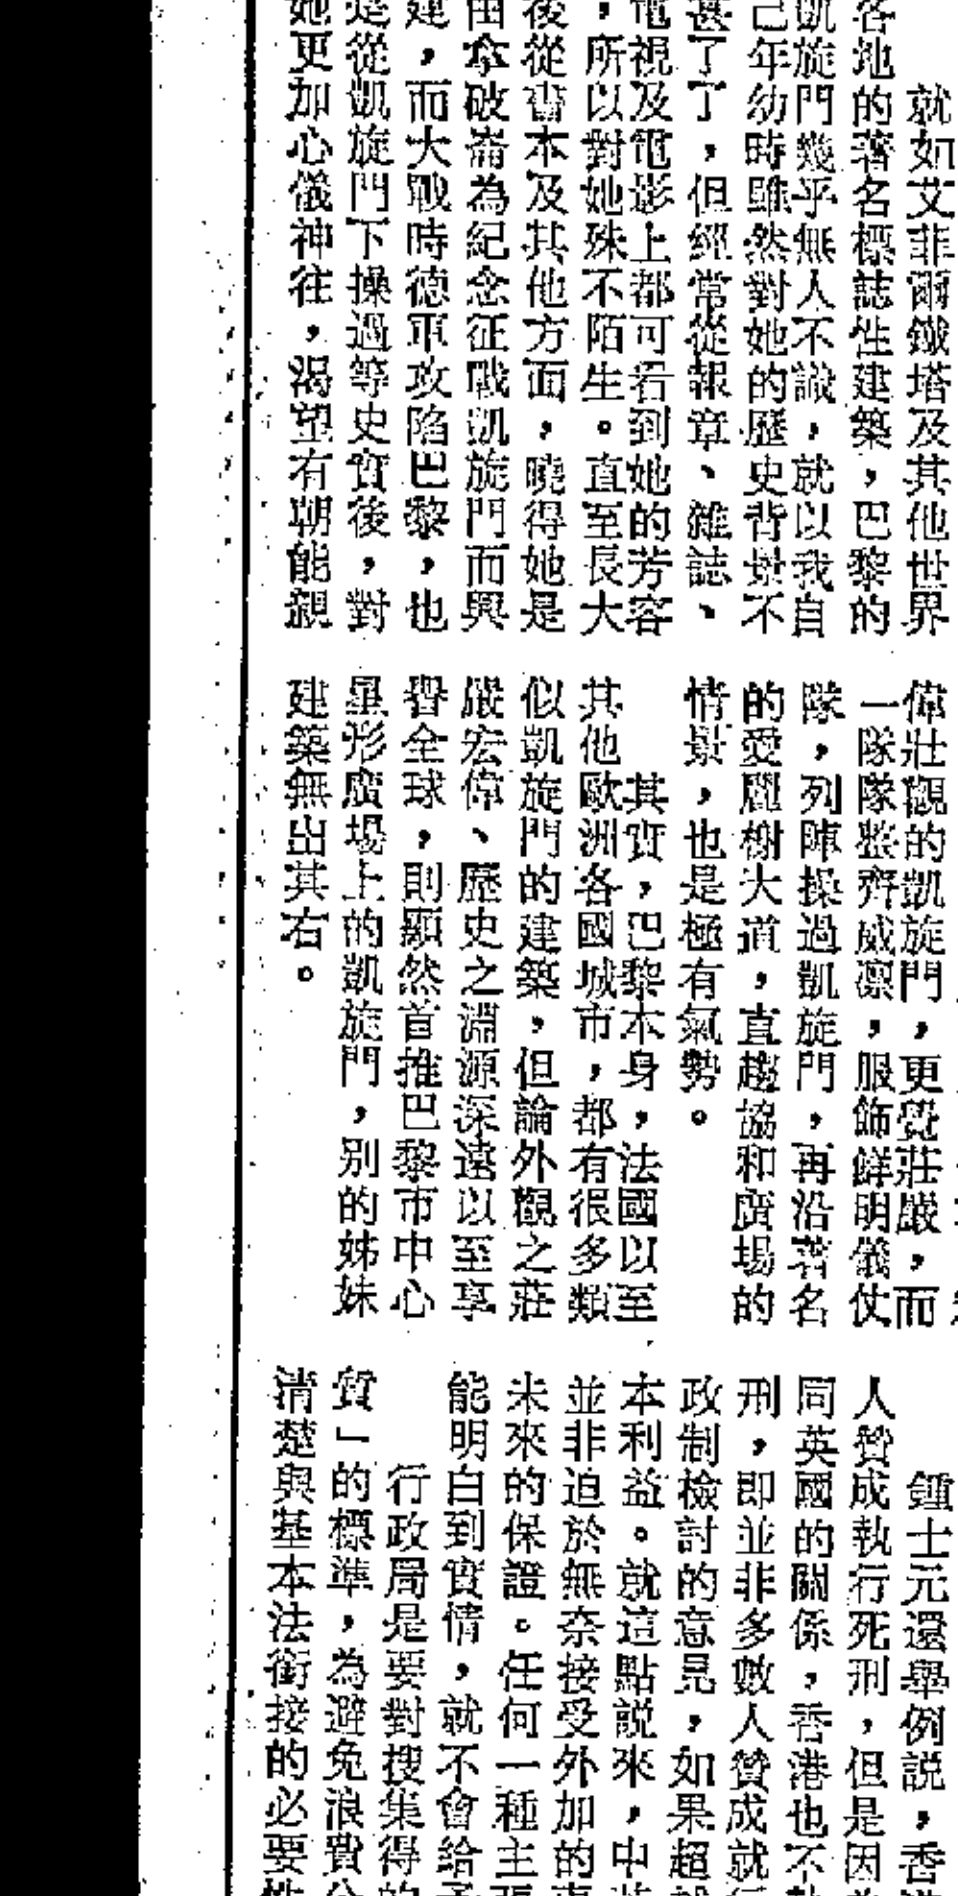 就如艾菲爾鐵塔及其他世界
各地的著名標誌性建築，巴黎的
凱旋門幾乎無人不識，就以我自
己年幼時雖然對她的歷史背景不
甚了了，但經常從報章、雜誌、
電視及電影上都可看到她的芳容
，所以對她殊不陌生。直至長大
後從書本及其他方面，曉得她是
由拿破崙為紀念征戰凱旋門而興
建，而大戰時德軍攻陷巴黎，也
是從凱旋門下操過等史實後，對
她更加心儀神往，渴望有朝能親
偉壯觀的凱旋門，更覺莊嚴，而
一隊隊整齊威凛，服飾鮮明儀仗
隊，列陣操過凱旋門，再沿著名
的愛麗榭大道，直趨協和廣場的
情景，也是極有氣勢。
其實，巴黎本身，法國以至
其他歐洲各國城市，都有很多類
似凱旋門的建築，但論外觀之莊
嚴宏偉、歷史之淵源深遠以至享
譽全球，則顯然首推巴黎市中心
星形廣場上的凱旋門，别的姊妹
建築無出其右。
鍾士元還舉例説，香
人贊成執行死刑，但是因
同英國的關係，香港也不
刑，即並非多數人贊成就
政制檢討的意見，如果超
本利益。就這點説來，中
並非迫於無奈接受外加的
未來的保證。任何一種主
能明白到實情，就不會給
行政局是要對搜集得的
質」的標準，為避免浪費
清楚與基本法銜接的必要性